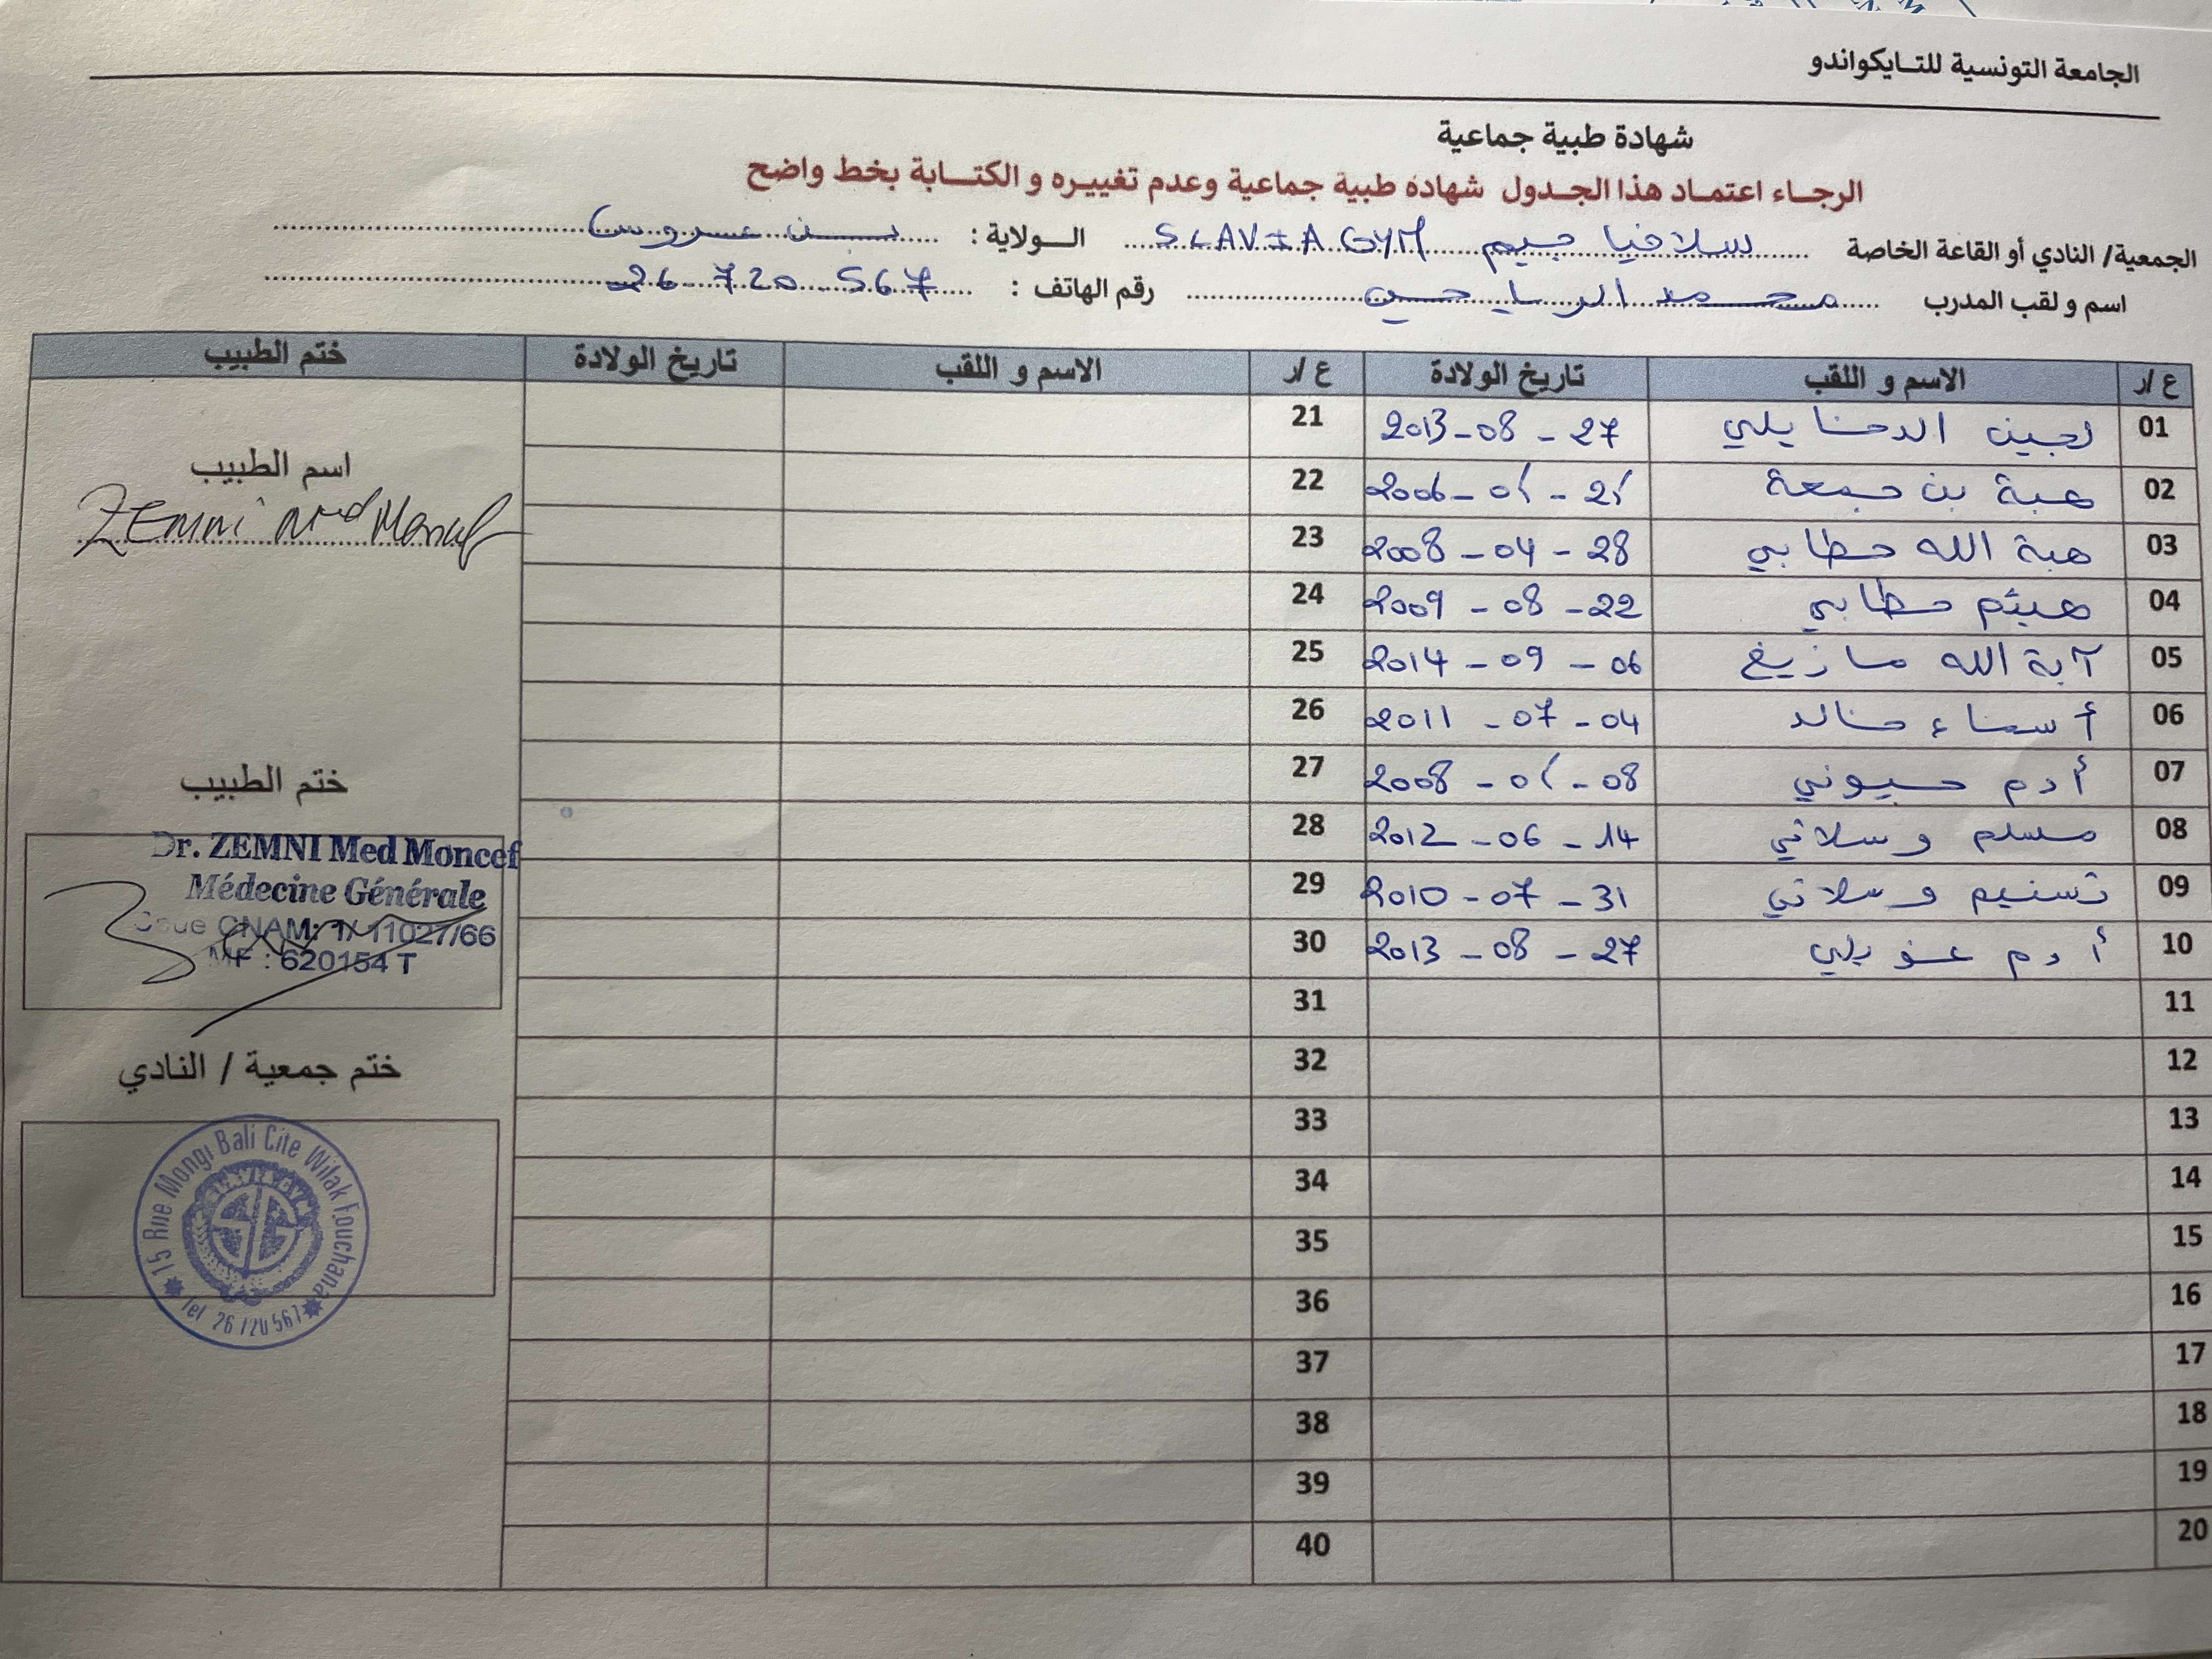 الجامعة التونسية للتايكواندو
شهادة طبية جماعية
الرجاء اعتماد هذا الجدول شهادة طبية جماعية وعدم تغييره و الكتابة بخط واضح
الجمعية/ النادي أو القاعة الخاصة سلافيا جيم SLAVIA GYM الولاية : بن عروس
اسم و لقب المدرب محمد الرياحي رقم الهاتف : 26 720 567
ع /ر الاسم و اللقب تاريخ الولادة ع /ر الاسم و اللقب تاريخ الولادة ختم الطبيب
01 لجين الدخايلي 27 - 08 - 2013 21
02 هبة بن جمعة 21 - 01 - 2006 22
03 هبة الله حطابي 28 - 04 - 2008 23
04 هيثم حطابي 22 - 08 - 2009 24
05 آية الله مازيغ 06 - 09 - 2014 25
06 أسماء خالد 04 - 07 - 2011 26
07 أدم حسيوني 08 - 01 - 2008 27
08 مسلم وسلاتي 14 - 06 - 2012 28
09 تسنيم وسلاتي 31 - 07 - 2010 29
10 أدم عذيلي 27 - 08 - 2013 30
11 31
12 32
13 33
14 34
15 35
16 36
17 37
18 38
19 39
20 40
اسم الطبيب
ZEmni Med Moncef
ختم الطبيب
Dr. ZEMNI Med Moncef
Médecine Générale
Code CNAM: 1/ 11027/66
MF : 620154 T
ختم جمعية / النادي
15 Rue Mongi Bali Cite Wifak Fouchana
Tel 26 720 567